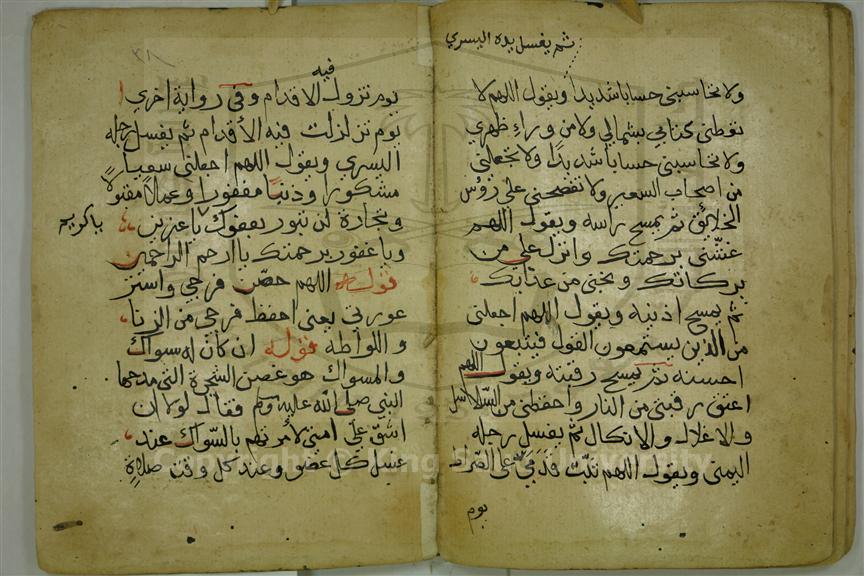 ثم يغسل يده اليسري
ولا تحاسبني حسابا شديدا ويقول اللهم لا
تعطني كتابي بشمالي ولا من وراء ظهري
ولا تحاسبني حسابا شديدا ولا تجعلني
من اصحاب السعير ولا تفضحني علي رؤس
الخلائق ثم يمسح راسه ويقول اللهم
غشني برحمتك وانزل علي من
بركاتك ونجني من عذابك
ثم يمسح اذنيه ويقول اللهم اجعلني
من الذين يستمعون القول فيتبعون
احسنه ثم يمسح رقبته ويقول اللهم
اعتق رقبتي من النار واحفظني من السلاسل
والاغلال والانكال ثم يغسل رجله
اليمني ويقول اللهم ثبت قدمي على الصراط
يوم
٣٨
فيه
يوم تزول الاقدام وفي رواية اخري
يوم تزلزلت فيه الأقدام ثم يغسل رجله
اليسري ويقول اللهم اجعلني سعيا
مشكورا وذنبا مغفورا وعملا مقبولا
وتجارة لن تبور بعفوك يا عزيز
يا كريم
ويا غفور برحمتك يا ارحم الراحمين
قوله اللهم حصن فرجي واستر
عورتي يعني احفظ فرجي من الزنا
واللواطة قوله ان كان له سواك
والمسواك هو غصن الشجرة التي مدحها
النبي صلى الله عليه وسلم فقال لولا ان
اشق علي امتي لامرتهم بالسواك عند
غسل كل عضو وعند كل وقت صلاة
Copyright © King Saud University